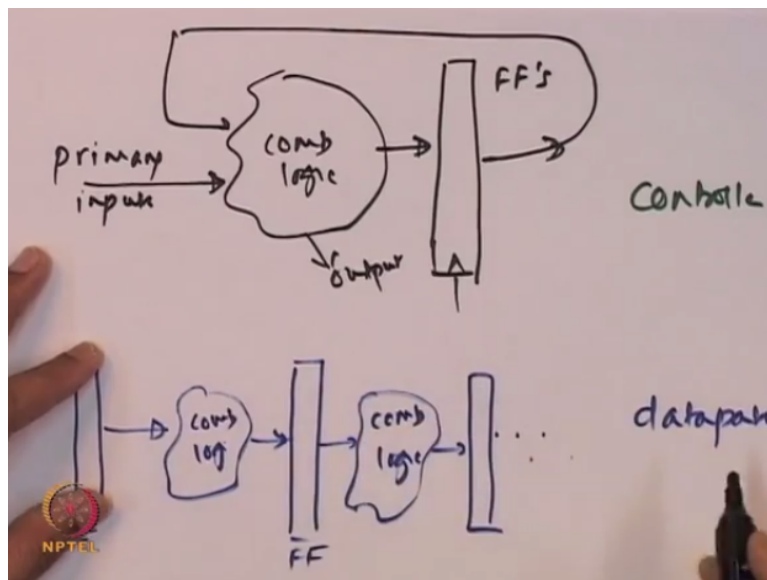 FF's
primary
inputs
comb
logic
output
Controlle
comb
log
FF
comb
logic
datapat
NPTEL